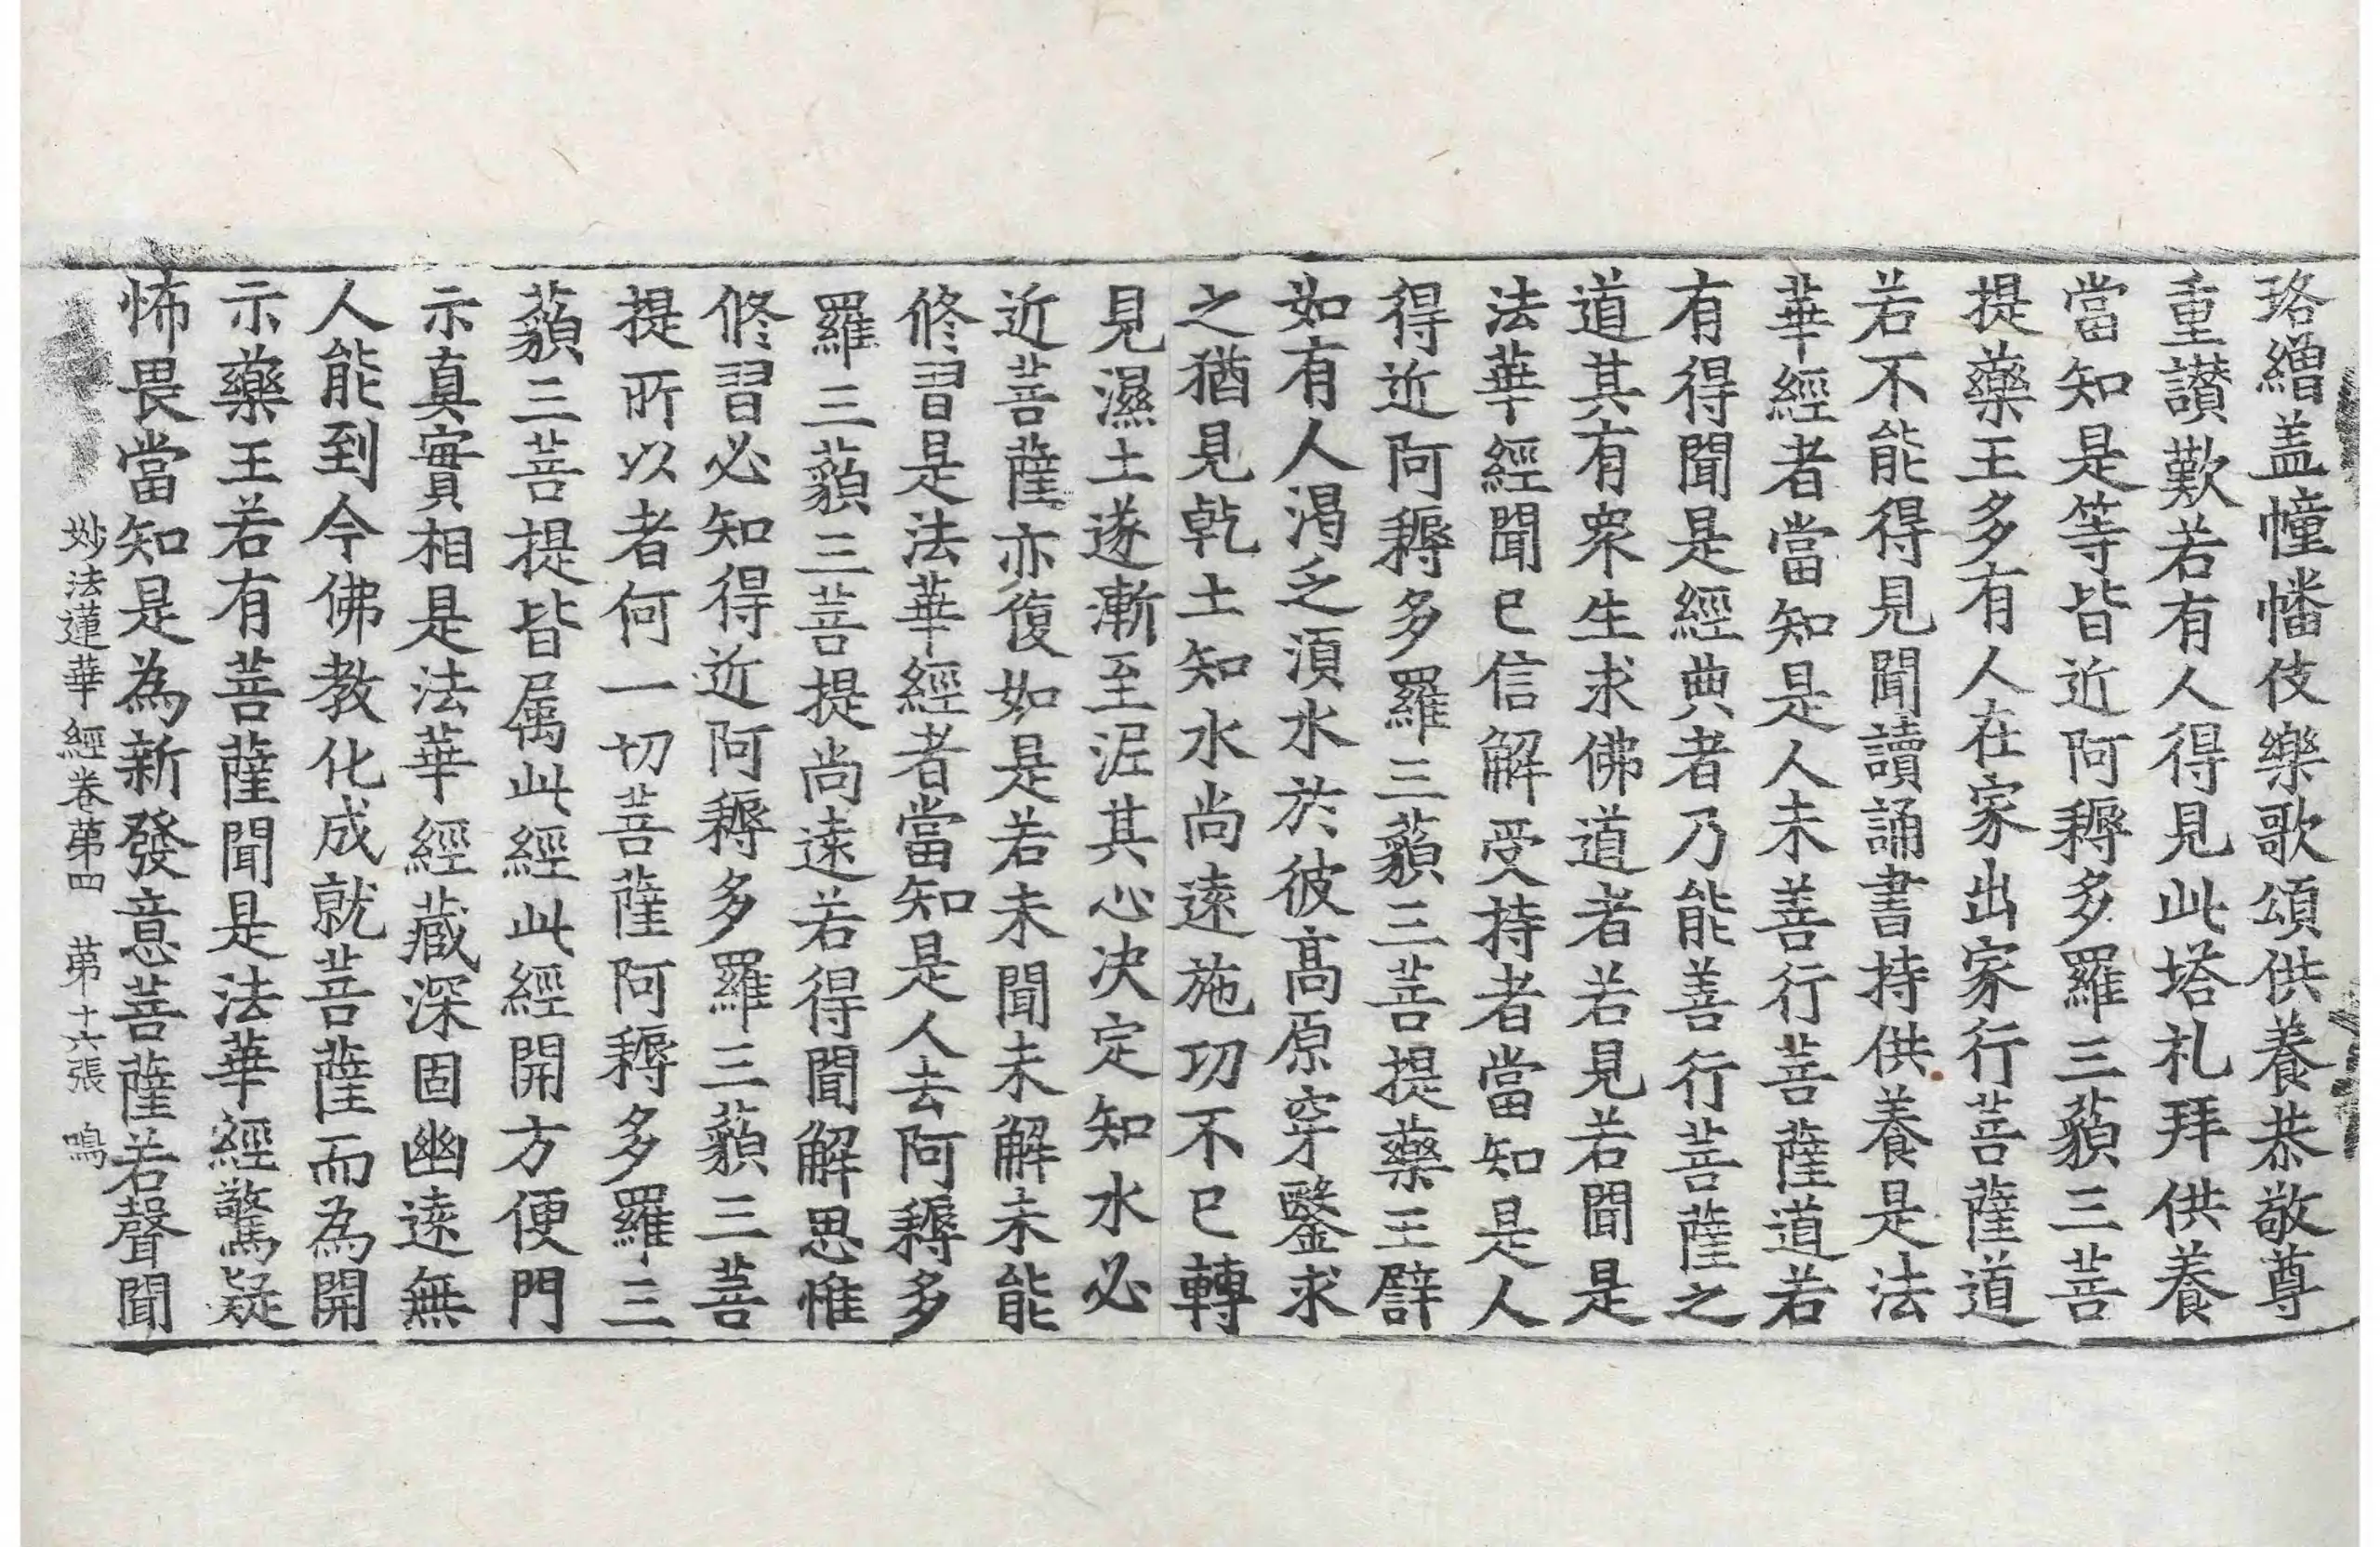 珞繒盖幢幡伎樂歌頌供養恭敬尊
重讃歎若有人得見此塔礼拜供養
當知是等皆近阿耨多羅三藐三菩
提藥王多有人在家出家行菩薩道
若不能得見聞讀誦書持供養是法
華經者當知是人未善行菩薩道若
有得聞是經典者乃能善行菩薩之
道其有衆生求佛道者若見若聞是
法華經聞已信解受持者當知是人
得近阿耨多羅三藐三菩提藥王譬
如有人渴乏湏水於彼高原穿鑿求
之猶見乾土知水尚遠施功不已轉
見濕土遂漸至泥其心决定知水必
近菩薩亦復如是若未聞未解未能
修習是法華經者當知是人去阿耨多
羅三藐三菩提尚遠若得聞解思惟
修習必知得近阿耨多羅三藐三菩
提所以者何一切菩薩阿耨多羅三
藐三菩提皆属此經此經開方便門
示真實相是法華經藏深固幽遠無
人能到今佛教化成就菩薩而為開
示藥王若有菩薩聞是法華經驚疑
怖畏當知是為新發意菩薩若聲聞
妙法蓮華經卷第四 第十六張 鳴